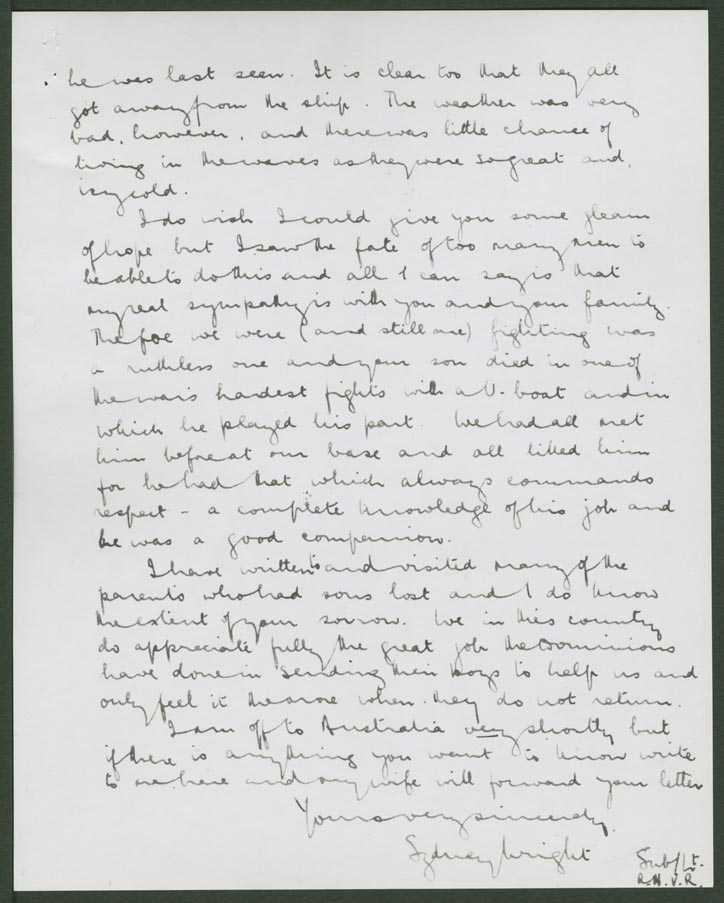 he was last seen. It is clear too that they all
got away from the ship. The weather was very
bad, however, and there was little chance of
living in the waves as they were so great and,
icy cold.
I do wish I could give you some gleam
of hope but I saw the fate of too many men to
be able to do this and all I can say is that
my real sympathy is with you and your family.
The foe we were (and still are) fighting was
a ruthless one and your son died in one of
the war's hardest fights with a U-boat and in
which he played his part. We had all met
him before at our base and all liked him
for he had that which always commands
respect - a complete knowledge of his job and
he was a good companion.
I have written to and visited many of the
parents who had sons lost and I do know
the extent of your sorrow. We in this country
do appreciate fully the great job the Dominions
have done in sending their boys to help us and
only feel it the more when they do not return.
I am off to Australia very shortly but
if there is anything you want to know write
to me here and my wife will forward your letter
Yours very sincerely,
Sydney Wright Sub/Lt.
R.N.V.R.